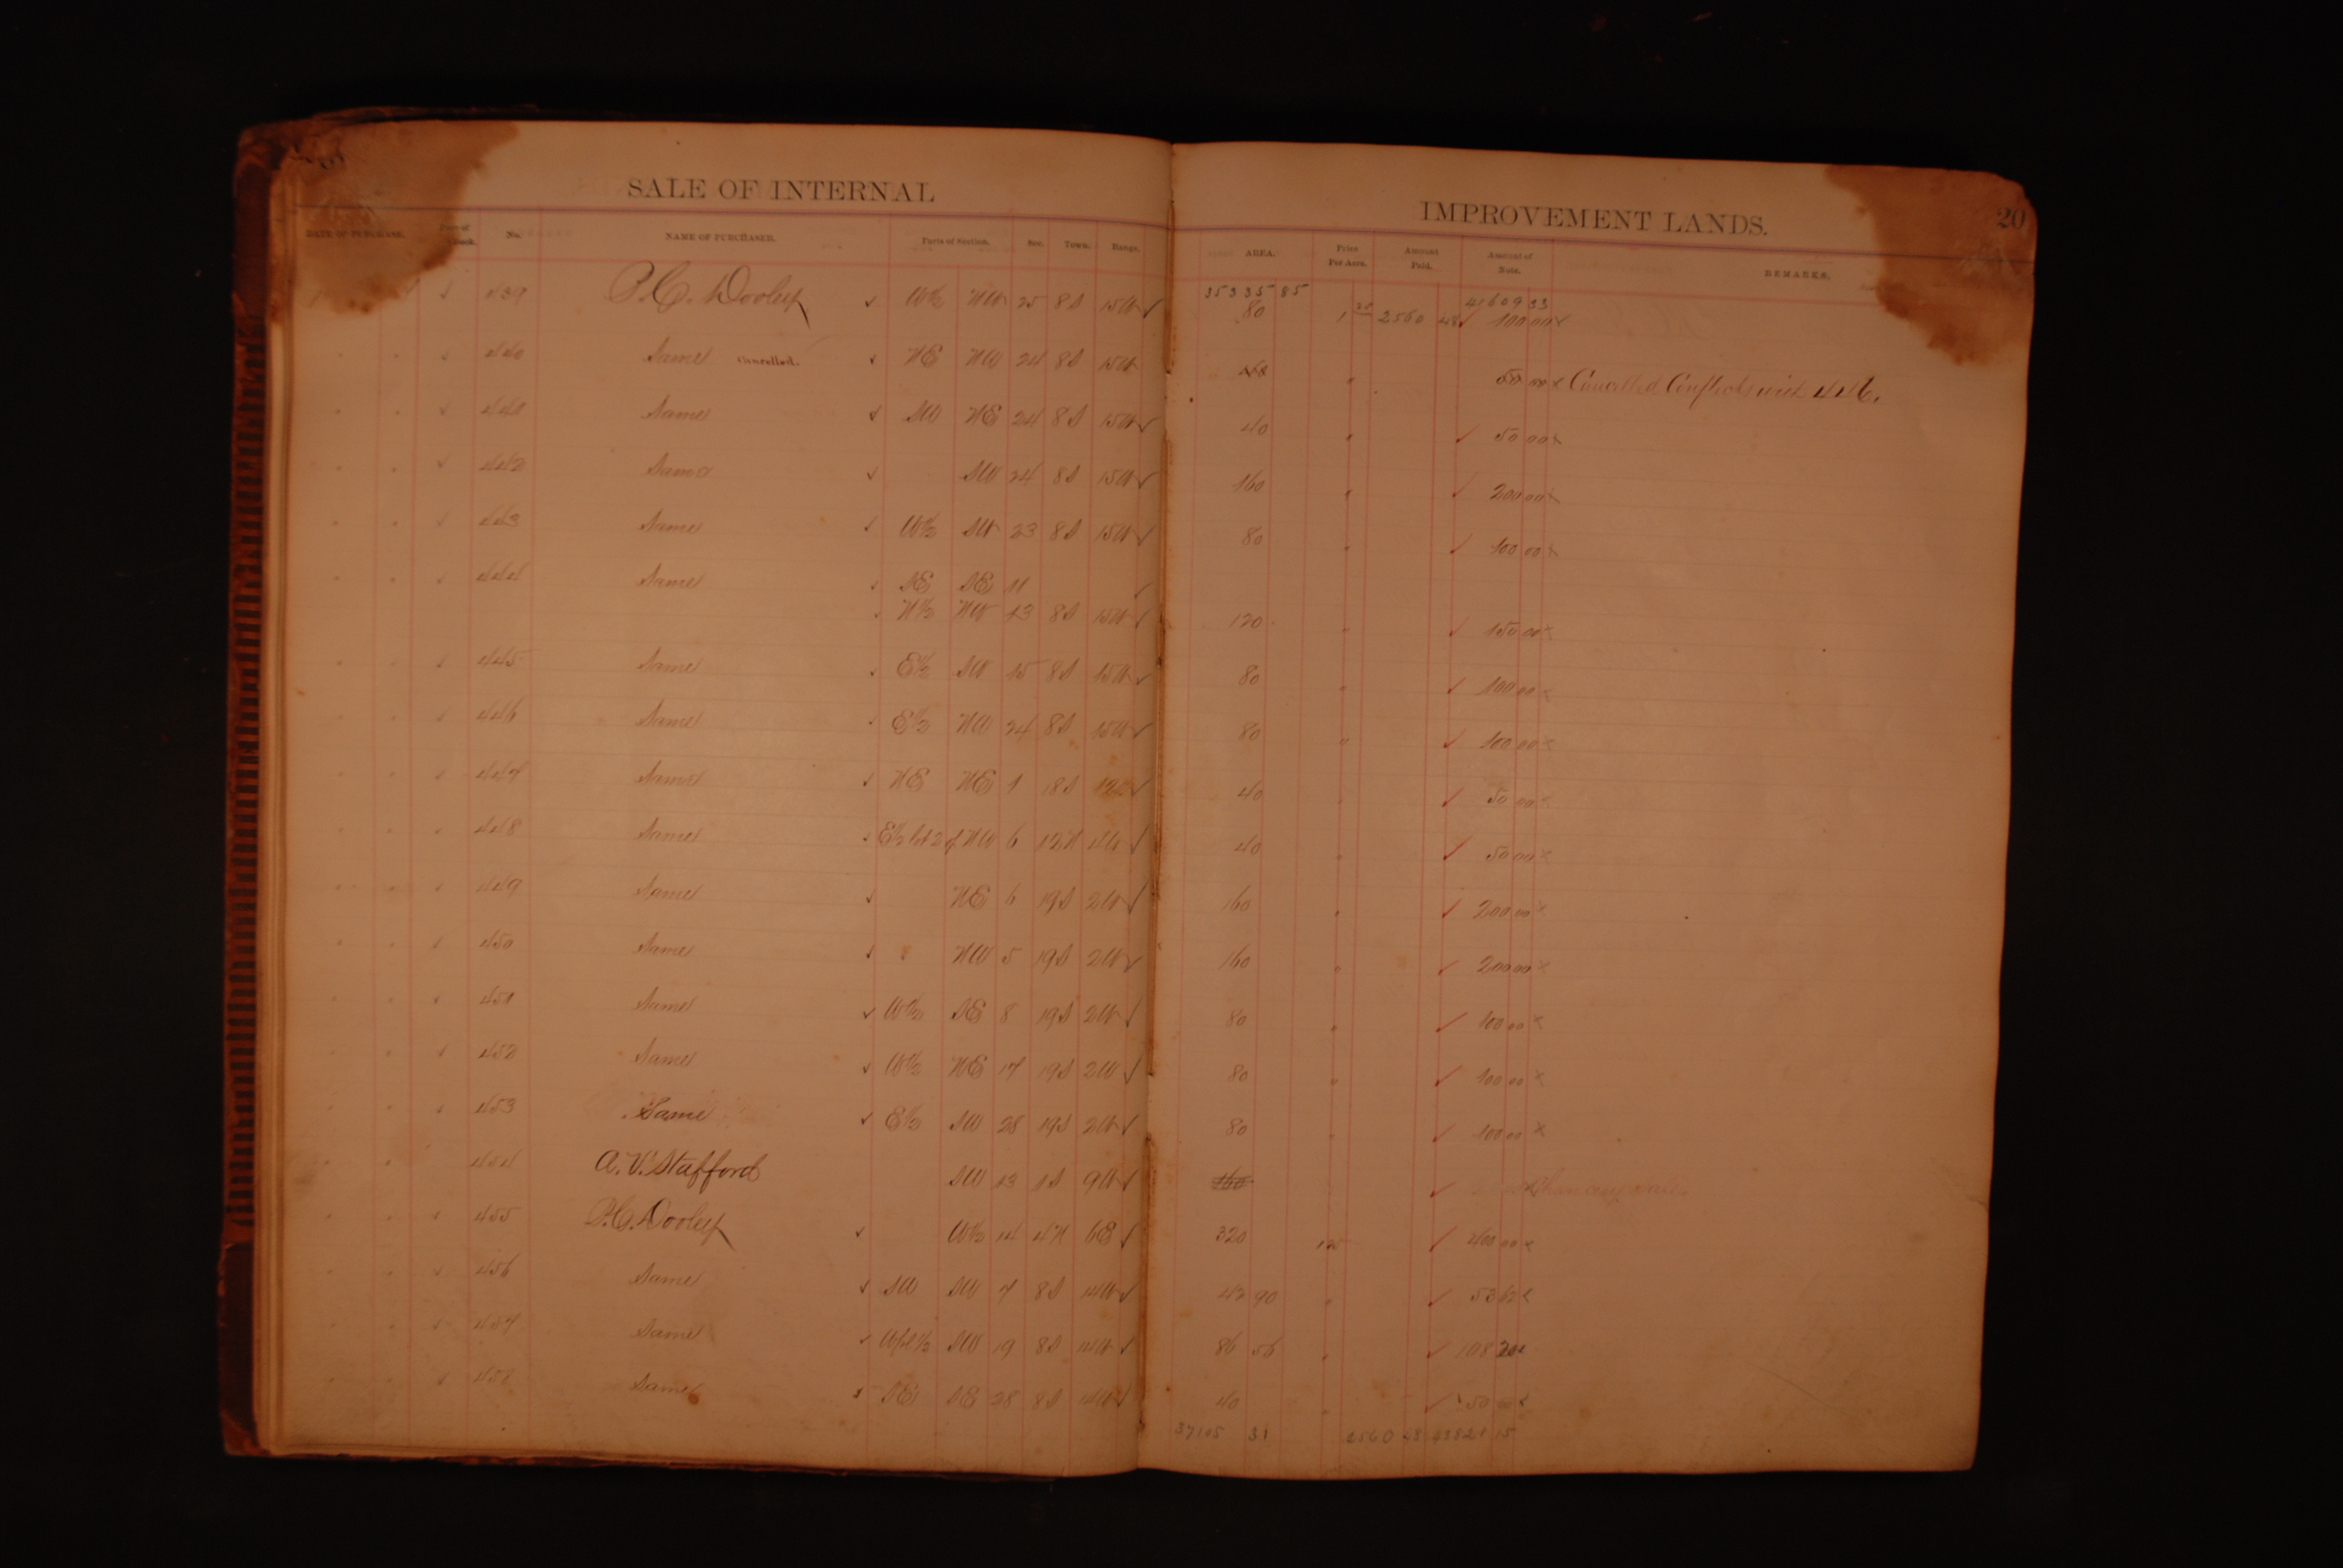 SALE OF INTERNAL IMPROVEMENT LANDS. 20
DATE OF PURCHASE. No. NAME OF PURCHASER. Parts of Section. Sec. Town. Range. AREA. Price Per Acre. Amount Paid. Amount of Note. REMARKS.
35335 85 41609 33
439 P. C. Dooley W½ NW 25 8S 15W 80 1 25 2560 48 100 00
440 Same Cancelled. NE NW 24 8S 15W 50 00 Cancelled Conflicts with 446.
441 Same SW NE 24 8S 15W 40 " 50 00
442 Same SW 24 8S 15W 160 " 200 00
443 Same W½ SW 23 8S 15W 80 " 100 00
444 Same SE SE 11
N½ NW 13 8S 15W 120 " 150 00
445 Same E½ SW 15 8S 15W 80 " 100 00
446 Same E½ NW 24 8S 15W 80 " 100 00
447 Same NE NE 1 18S 40 50 00
448 Same E½ lot 2 of NW 6 12N 40 " 50 00
449 Same NE 6 19S 2W 160 " 200 00
450 Same NW 5 19S 2W 160 " 200 00
451 Same W½ SE 8 19S 2W 80 " 100 00
452 Same W½ NE 17 19S 2W 80 " 100 00
453 Same E½ SW 28 19S 2W 80 " 100 00
454 A. V. Stafford SW 13 1S 9W 160
455 P. C. Dooley W½ 14 4N 6E 320 1 25 400 00
456 Same SW SW 7 8S 14W 42 90 " 53 62
457 Same Wfrl½ SW 19 8S 14W 86 56 " 108 20
458 Same SE SE 28 8S 14W 40 " 50 00
37105 31 2560 48 43821 15